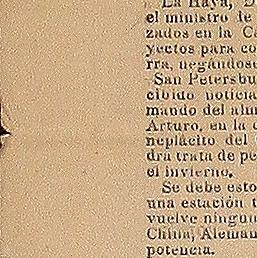 La Haya, D
el ministro
zados en la C
yectos para co
rra, negándose
San Petersbu
cibido noticia
mando del
Arturo, en la
neplácito del
drá trata de pe
el invierno.
Se debe esto
una estación t
vuelve ningun
China, Aleman
potencia.